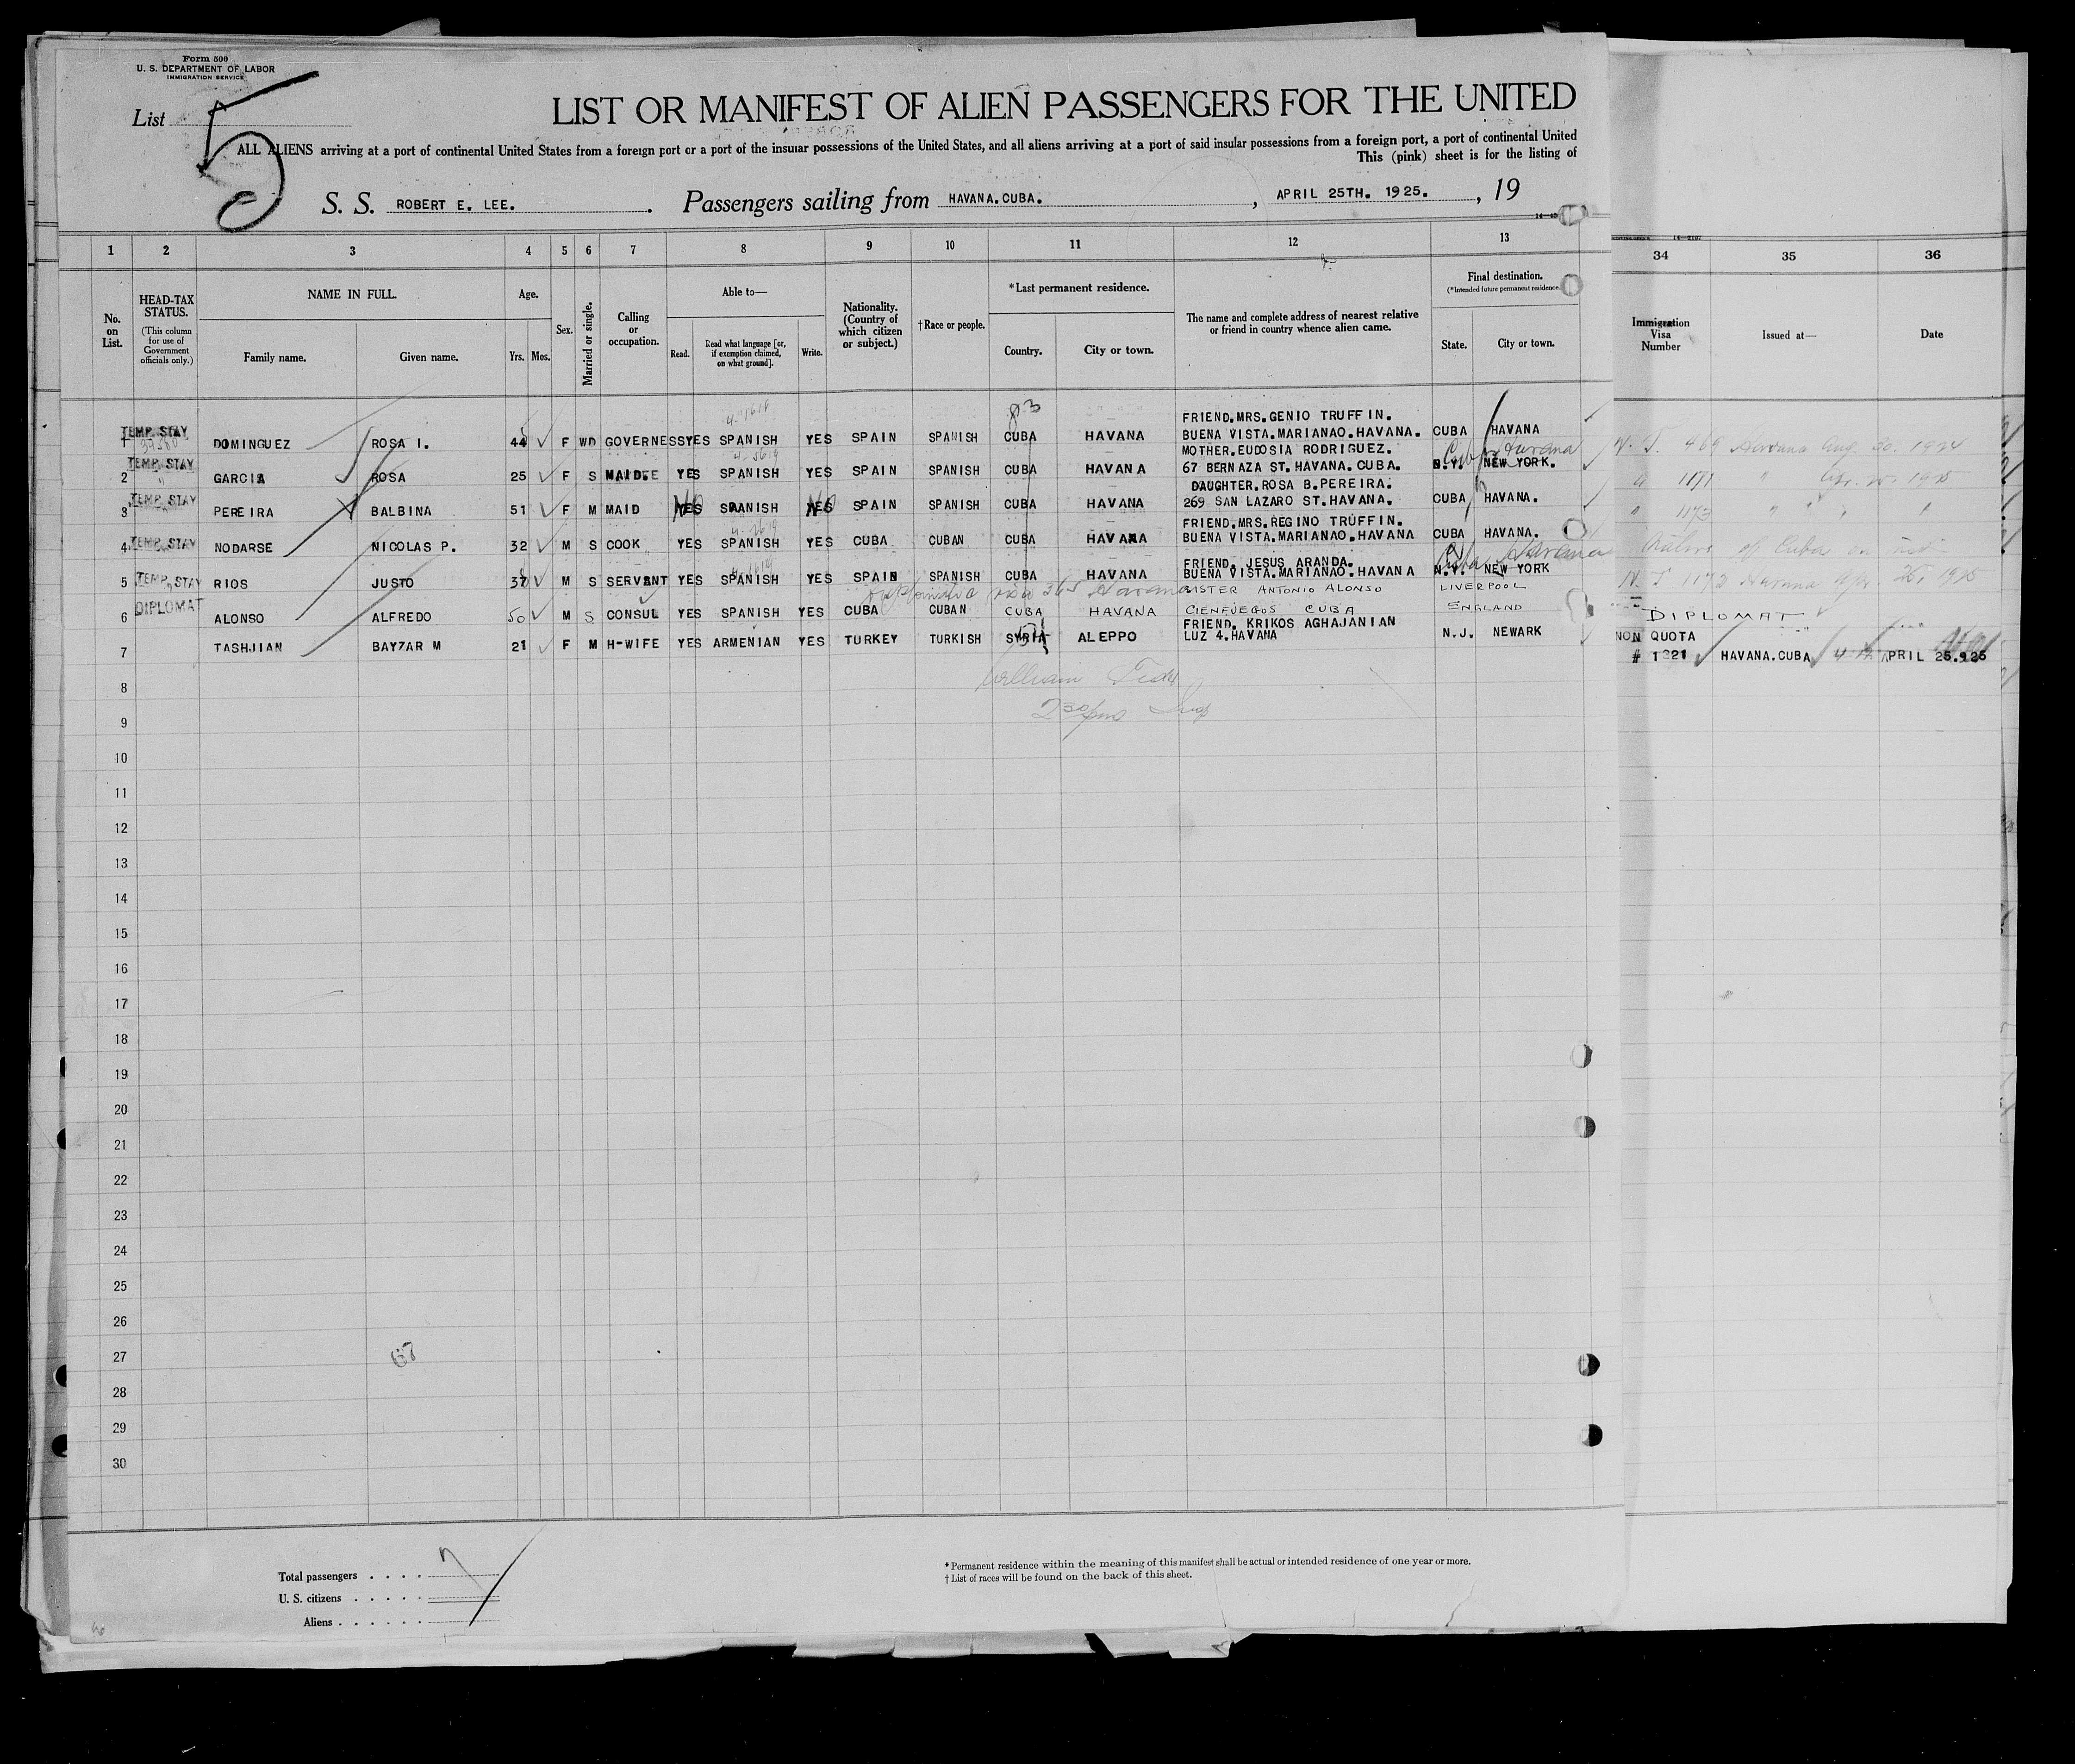 Form 500
U. S. DEPARTMENT OF LABOR
IMMIGRATION SERVICE
List 5
LIST OR MANIFEST OF ALIEN PASSENGERS FOR THE UNITED
ALL ALIENS arriving at a port of continental United States from a foreign port or a port of the insular possessions of the United States, and all aliens arriving at a port of said insular possessions from a foreign port, a port of continental United
This (pink) sheet is for the listing of
S. S. ROBERT E. LEE. Passengers sailing from HAVANA.CUBA. , APRIL 25TH. 1925. , 19
1 2 3 4 5 6 7 8 9 10 11 12 13 34 35 36
No. on List.
HEAD-TAX STATUS.
(This column for use of Government officials only.)
NAME IN FULL.
Family name. Given name.
Age.
Yrs. Mos.
Sex.
Married or single.
Calling or occupation.
Able to—
Read. Read what language [or, if exemption claimed, on what ground]. Write.
Nationality. (Country of which citizen or subject.)
†Race or people.
*Last permanent residence.
Country. City or town.
The name and complete address of nearest relative or friend in country whence alien came.
Final destination.
(*Intended future permanent residence.)
State. City or town.
Immigration Visa Number
Issued at—
Date
83
FRIEND.MRS.GENIO TRUFFIN.
1 TEMP. STAY DOMINGUEZ ROSA I. 44 F WD GOVERNESS YES SPANISH YES SPAIN SPANISH CUBA HAVANA BUENA VISTA.MARIANAO.HAVANA. CUBA HAVANA 469 Havana Aug. 20. 1924
MOTHER.EUDOSIA RODRIGUEZ. Cuba Havana
2 TEMP. STAY GARCIA ROSA 25 F S MAID. YES SPANISH YES SPAIN SPANISH CUBA HAVANA 67 BERNAZA ST.HAVANA.CUBA. N.Y. NEW YORK. 1171 " 1925
DAUGHTER.ROSA B.PEREIRA.
3 TEMP. STAY PEREIRA BALBINA 51 F M MAID YES NO SPANISH YES NO SPAIN SPANISH CUBA HAVANA 269 SAN LAZARO ST.HAVANA. CUBA HAVANA. " 1173 " "
FRIEND.MRS.REGINO TRUFFIN.
4 TEMP. STAY NODARSE NICOLAS P. 32 M S COOK YES SPANISH YES CUBA CUBAN CUBA HAVANA BUENA VISTA.MARIANAO.HAVANA CUBA HAVANA. Native of Cuba
FRIEND. JESUS ARANDA. Cuba Havana
5 TEMP. STAY RIOS JUSTO M S SERVANT YES SPANISH YES SPAIN SPANISH CUBA HAVANA BUENA VISTA.MARIANAO.HAVANA N.Y. NEW YORK 1172 Havana Apr. 25, 1925
365 Havana SISTER ANTONIO ALONSO LIVERPOOL
6 DIPLOMAT ALONSO ALFREDO 50 M S CONSUL YES SPANISH YES CUBA CUBAN CUBA HAVANA CIENFUEGOS CUBA ENGLAND DIPLOMAT
FRIEND. KRIKOS AGHAJANIAN NON QUOTA
7 TASHJIAN BAYZAR M 21 F M H-WIFE YES ARMENIAN YES TURKEY TURKISH SYRIA ALEPPO LUZ 4.HAVANA N.J. NEWARK # 1321 HAVANA.CUBA APRIL 25.925
8 William
9 2 30 pm
10
11
12
13
14
15
16
17
18
19
20
21
22
23
24
25
26
27
28
29
30
Total passengers . . . . 7
U. S. citizens . . . . .
Aliens . . . . . .
* Permanent residence within the meaning of this manifest shall be actual or intended residence of one year or more.
† List of races will be found on the back of this sheet.